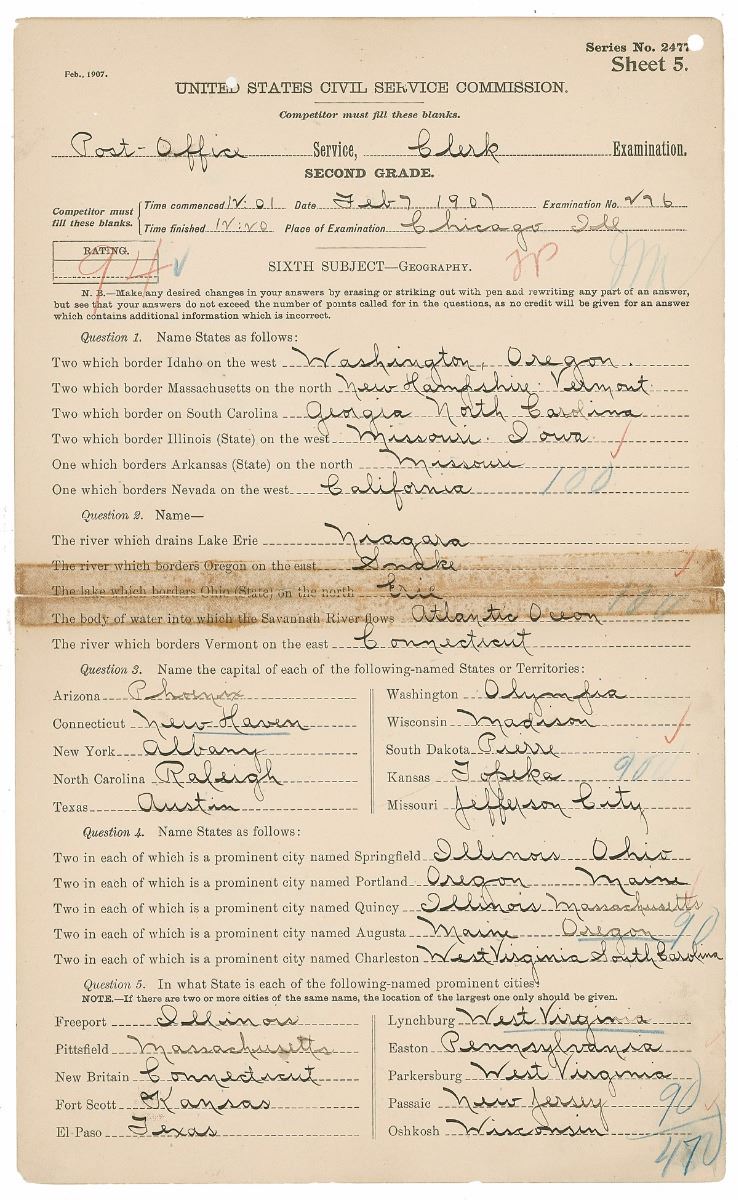 Series No. 2477
Feb., 1907.
Sheet 5.
UNITED STATES CIVIL SERVICE COMMISSION.
Competitor must fill these blanks.
Post-Office Service, Clerk Examination.
SECOND GRADE.
Competitor must fill these blanks.
Time commenced 12:01 Date Feb 7 1907 Examination No. 276
Time finished 12:20 Place of Examination Chicago Ill
RATING.
94
SIXTH SUBJECT—GEOGRAPHY.
N. B.—Make any desired changes in your answers by erasing or striking out with pen and rewriting any part of an answer,
but see that your answers do not exceed the number of points called for in the questions, as no credit will be given for an answer
which contains additional information which is incorrect.
Question 1. Name States as follows:
Two which border Idaho on the west Washington, Oregon.
Two which border Massachusetts on the north New Hampshire. Vermont.
Two which border on South Carolina Georgia North Carolina
Two which border Illinois (State) on the west Missouri. Iowa.
One which borders Arkansas (State) on the north Missouri
One which borders Nevada on the west California 100
Question 2. Name—
The river which drains Lake Erie Niagara
The river which borders Oregon on the east Snake
The lake which borders Ohio (State) on the north Erie 100
The body of water into which the Savannah River flows Atlantic Oceon
The river which borders Vermont on the east Connecticut
Question 3. Name the capital of each of the following-named States or Territories:
Arizona Phoenix Washington Olympia
Connecticut New Haven Wisconsin Madison
New York Albany South Dakota Pierre
North Carolina Raleigh Kansas Topeka 90
Texas Austin Missouri Jefferson City
Question 4. Name States as follows:
Two in each of which is a prominent city named Springfield Illinois Ohio
Two in each of which is a prominent city named Portland Oregon Maine
Two in each of which is a prominent city named Quincy Illinois Massachusetts
Two in each of which is a prominent city named Augusta Maine Oregon 90
Two in each of which is a prominent city named Charleston West Virginia South Carolina
Question 5. In what State is each of the following-named prominent cities?
NOTE.—If there are two or more cities of the same name, the location of the largest one only should be given.
Freeport Illinois Lynchburg West Virginia
Pittsfield Massachusetts Easton Pennsylvania
New Britain Connecticut Parkersburg West Virginia
Fort Scott Kansas Passaic New Jersey 90
El-Paso Texas Oshkosh Wisconsin
470